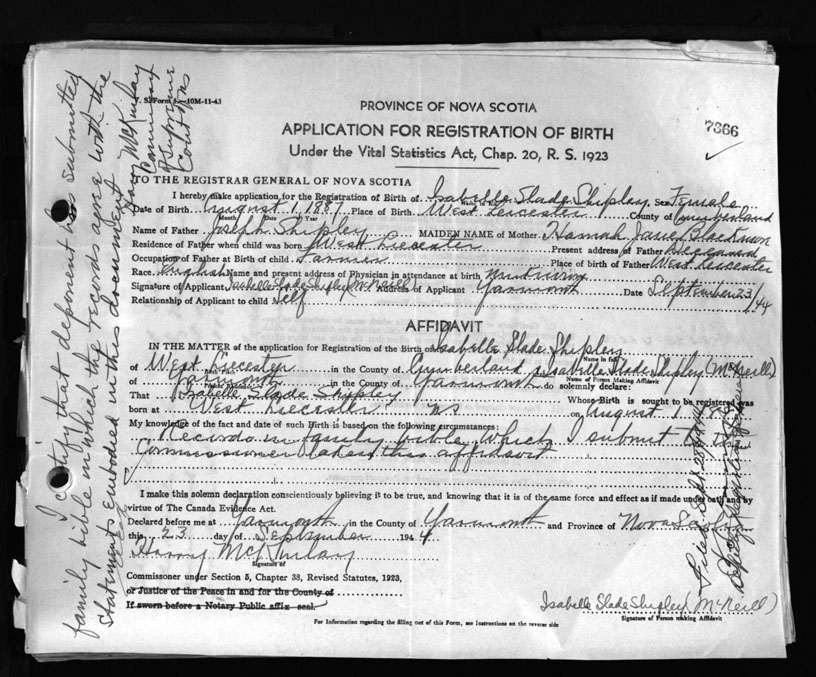 Form 10M-11-43
PROVINCE OF NOVA SCOTIA
APPLICATION FOR REGISTRATION OF BIRTH
7366
Under the Vital Statistics Act, Chap. 20, R. S. 1923
TO THE REGISTRAR GENERAL OF NOVA SCOTIA
I hereby make application for the Registration of Birth of Isabelle Slade Shipley Sex Female
Date of Birth August 1, 188 Place of Birth West Leicester County of Cumberland
Month Date Year
Name of Father Joseph Shipley MAIDEN NAME of Mother Hannah Jane Blackmore
Residence of Father when child was born West Leicester Present address of Father Deceased
Occupation of Father at Birth of child Farmer Place of birth of Father West Leicester
Race English Name and present address of Physician in attendance at birth
Signature of Applicant Isabelle Slade Shipley (McNeill) Address of Applicant Yarmouth Date September 23/44
Relationship of Applicant to child Self
AFFIDAVIT
IN THE MATTER of the application for Registration of the Birth of Isabelle Slade Shipley
Name in full
of West Leicester in the County of Cumberland, I Isabelle Slade Shipley (McNeill)
Name of Person Making Affidavit
of Yarmouth in the County of Yarmouth do solemnly declare:
That Isabelle Slade Shipley Whose Birth is sought to be registered was
born at West Leicester NS on August 1 188
My knowledge of the fact and date of such Birth is based on the following circumstances:
Records in family bible which I submit to the
Commissioner taken this affidavit
I make this solemn declaration conscientiously believing it to be true, and knowing that it is of the same force and effect as if made under oath and by
virtue of The Canada Evidence Act.
Declared before me at Yarmouth in the County of Yarmouth and Province of Nova Scotia
this 23 day of September 1944
Harry McKinlay
Signature of
Commissioner under Section 5, Chapter 38, Revised Statutes, 1923,
or Justice of the Peace in and for the County of
If sworn before a Notary Public affix seal.
Isabelle Slade Shipley (McNeill)
Signature of Person making Affidavit
For Information regarding the filling out of this Form, see Instructions on the reverse side
I certify that deponent has submitted
family bible in which the records agree with the
statements embodied in this document
Harry McKinlay
Commissioner
Supreme
Court NS
Filed Sept 28